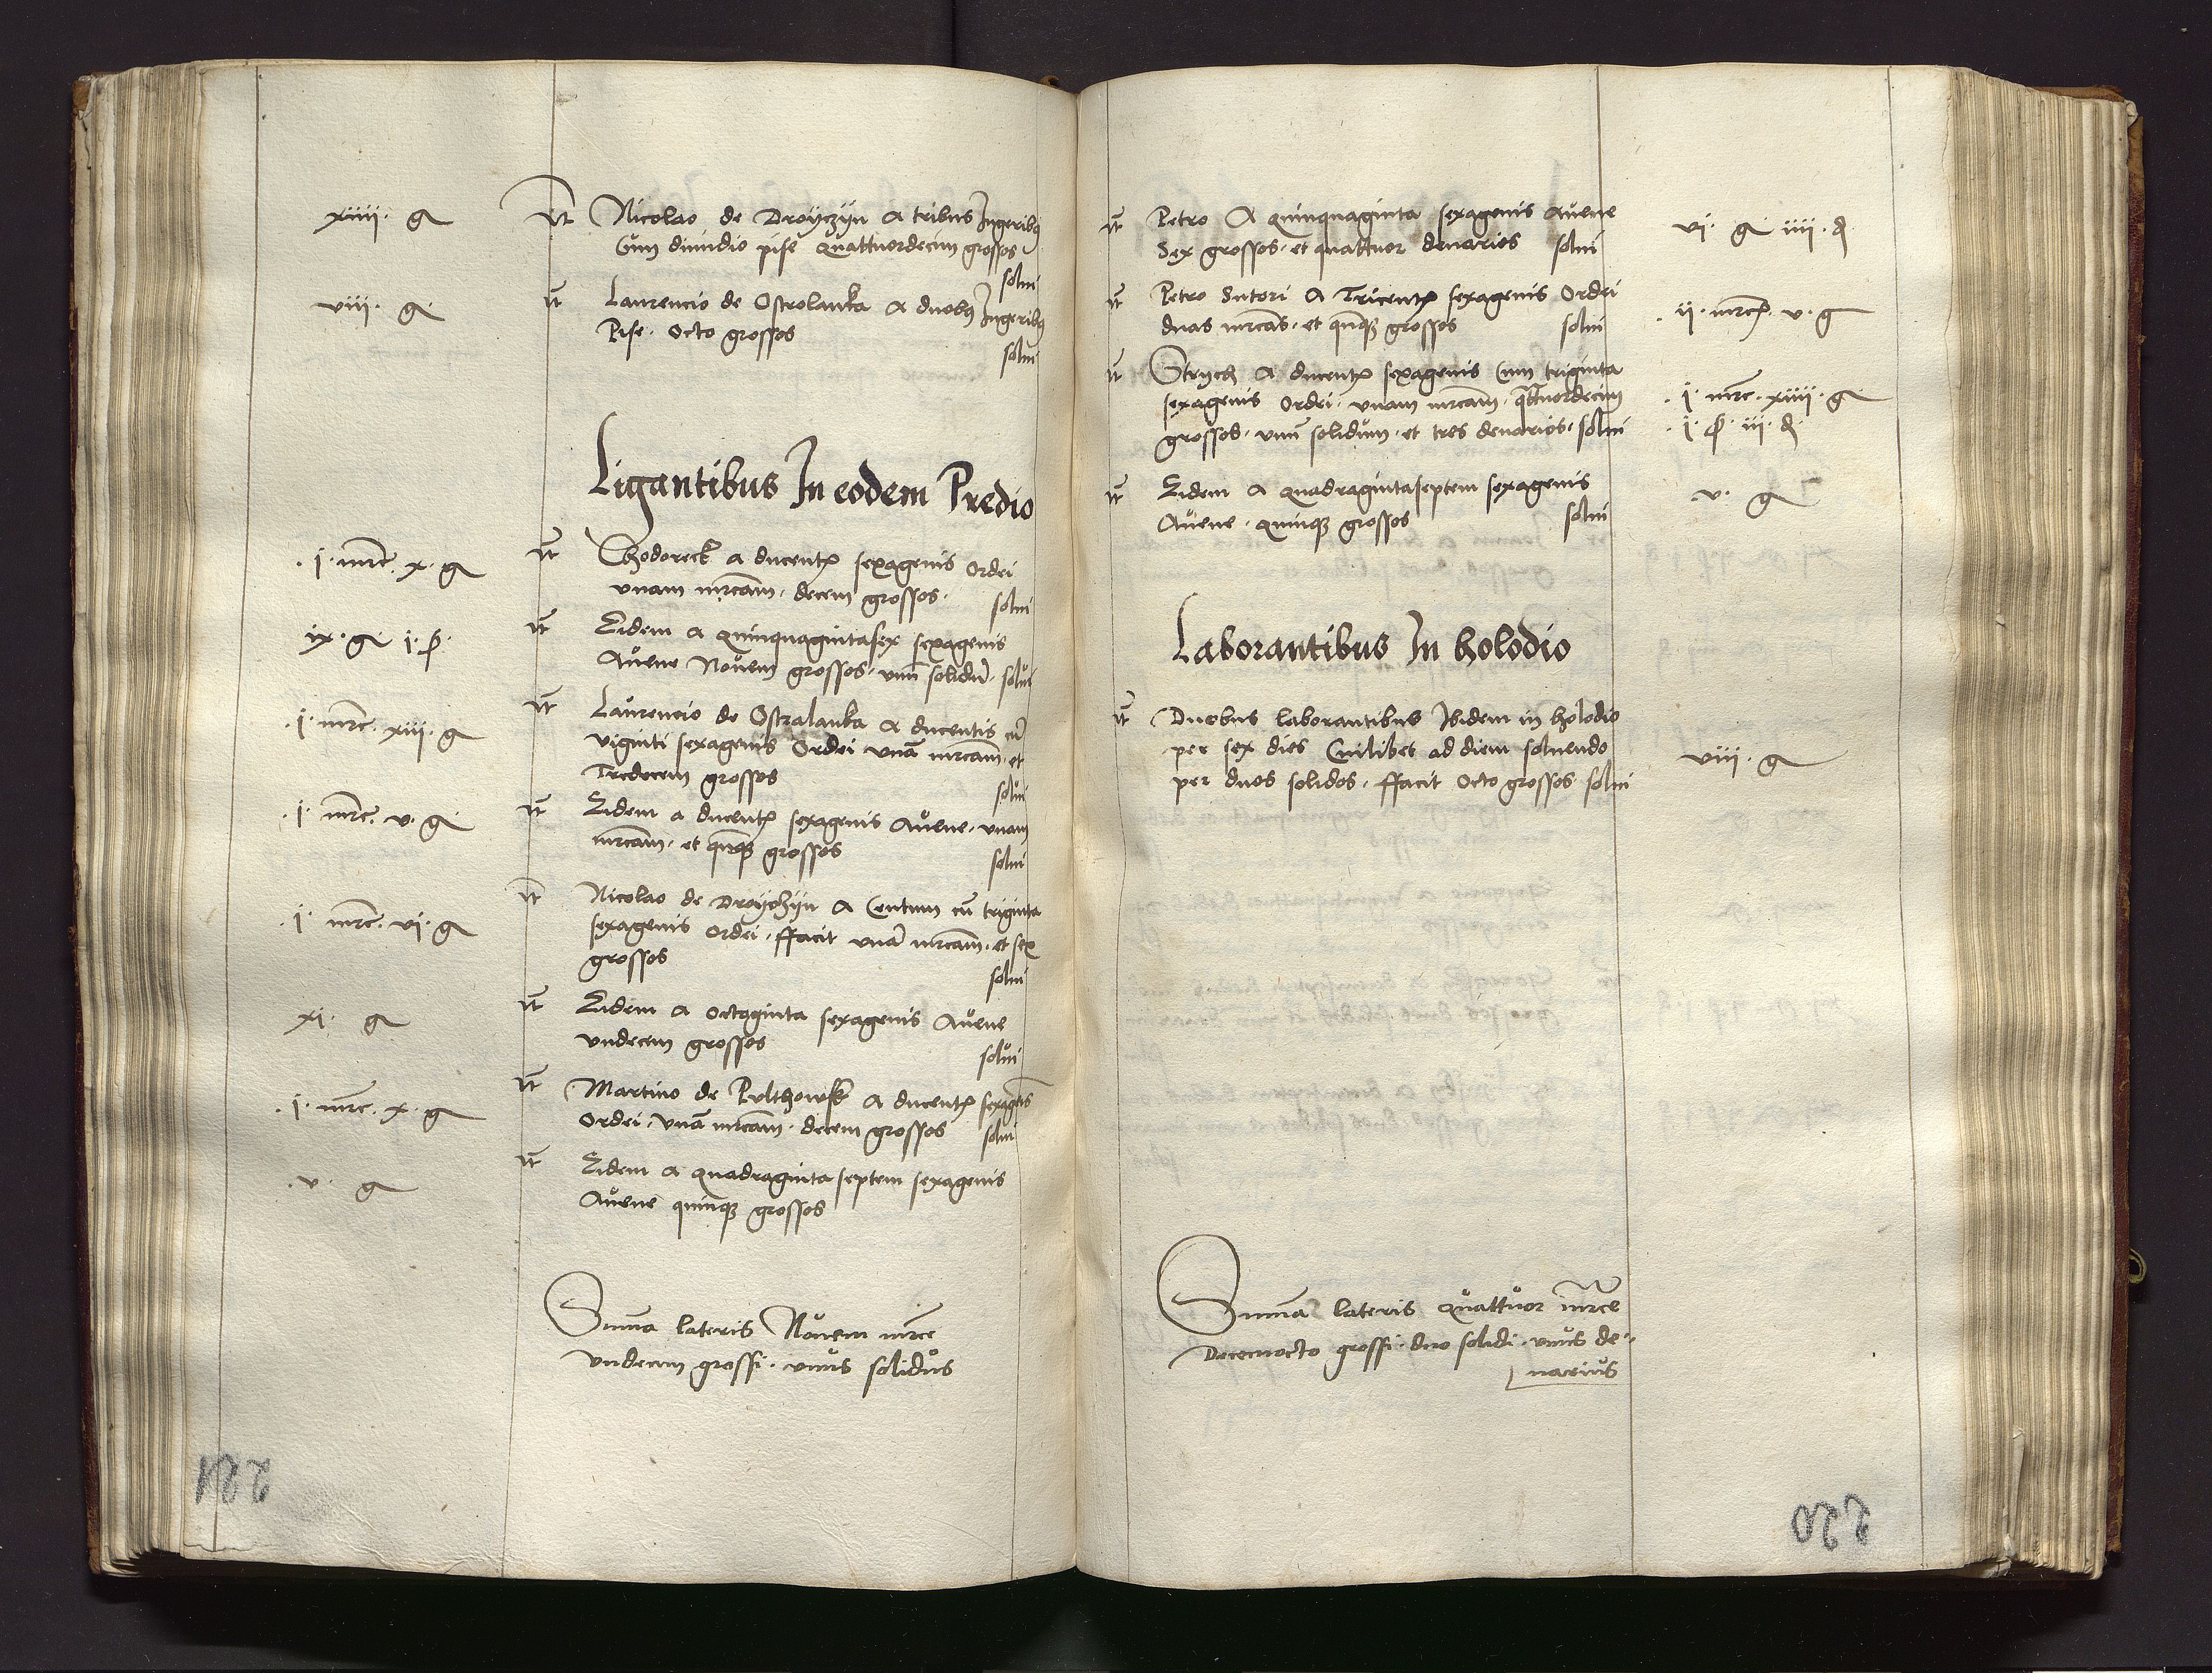 xiiii · g
Nicolao de Droyczyn a tribus Jugeribus
Cum dimidio pise quattuordecim grossos
solui
viii · g
Laurencio de Ostrolanka a duobus Jugeribus
Pise · Octo grossos
solui
Ligantibus In eodem Predio
· i · mrc · x · g
Chodoreck a ducentis sexagenis Ordei
vnam mrcam · decem grossos ·
solui
ix · g · i · s ·
Eidem a quinquagintasex sexagenis
Auene Nouem grossos · vnum solidum · solui
· i · mrc · xiii · g
Laurencio de Ostralanka a ducentis cum
viginti sexagenis Ordei vnam mrcam · et
Tredecem grossos
solui
· i · mrc · v · g ·
Eidem a ducentis sexagenis Auene · vnam
mrcam · et quinque grossos
solui
· i · mrc · vi · g
Nicolao de Droyczyn a Centum cum triginta
sexagenis Ordei · ffacit vnam mrcam · et sex
grossos
solui
xi · g
Eidem a octoginta sexagenis Auene
vndecem grossos
solui
· i · mrc · x · g
Martino de Pulthowsk a ducentis sexagenis
Ordei · vnam mrcam · decem grossos solui
· v · g
Eidem a quadragintaseptem sexagenis
Auene quinque grossos
Summa lateris Nouem mrce
vndecim grossi · vnus solidus
221
Petro a quinquaginta sexagenis Auene
Sex grossos · et quattuor denarios solui
vi · g iiii · d
Petro Sutori a Tricentis sexagenis Ordei
duas mrcas · et quinque grossos solui
· ii · mrc · v · g
Strych a ducentis sexagenis Cum triginta
sexagenis Ordei · vnam mrcam · quattuordecim
grossos · vnum solidum · et tres denarios · solui
· i · mrc · xiiii · g
· i · s · iii · d ·
Eidem a quadragintaseptem sexagenis
Auene · quinque grossos solui
· v · g
Laborantibus In holodio
Duobus laborantibus Ibidem in holodio
per sex dies Cuilibet ad diem soluendo
per duos solidos · ffacit Octo grossos solui
viii · g
Summa lateris quattuor mrce
Decemocto grossi · duo solidi · vnus de-
narius
220